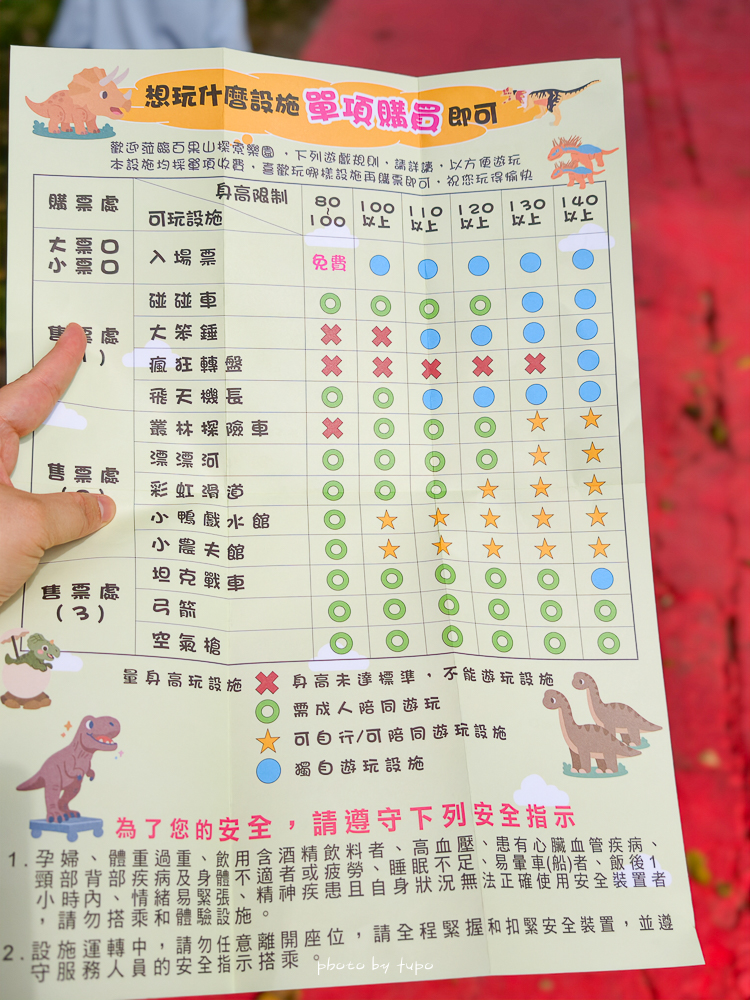 想玩什麼設施單項購買即可
歡迎蒞臨百果山探索樂園，下列遊戲規則，請詳讀，以方便遊玩
本設施均採單項收費，喜歡玩哪樣設施再購票即可，祝您玩得愉快
購票處 身高限制 可玩設施 80~100 100以上 110以上 120以上 130以上 140以上
大票口
小票口
入場票 免費
售票處
碰碰車
大笨錘
瘋狂轉盤
飛天機長
售票處
叢林探險車
漂漂河
彩虹滑道
小鴨戲水館
小農夫館
售票處
(3)
坦克戰車
弓箭
空氣槍
量身高玩設施 身高未達標準，不能遊玩設施
需成人陪同遊玩
可自行/可陪同遊玩設施
獨自遊玩設施
為了您的安全，請遵守下列安全指示
1.孕婦、體重過重、飲用含酒精飲料者、高血壓、患有心臟血管疾病、
頸部背部疾病及身體不適者或疲勞、睡眠不足、易暈車(船)者、飯後1
小時內、情緒易緊張、精神疾患且自身狀況無法正確使用安全裝置者
，請勿搭乘和體驗設施。
2.設施運轉中，請勿任意離開座位，請全程緊握和扣緊安全裝置，並遵
守服務人員的安全指示搭乘。
photo by tupo